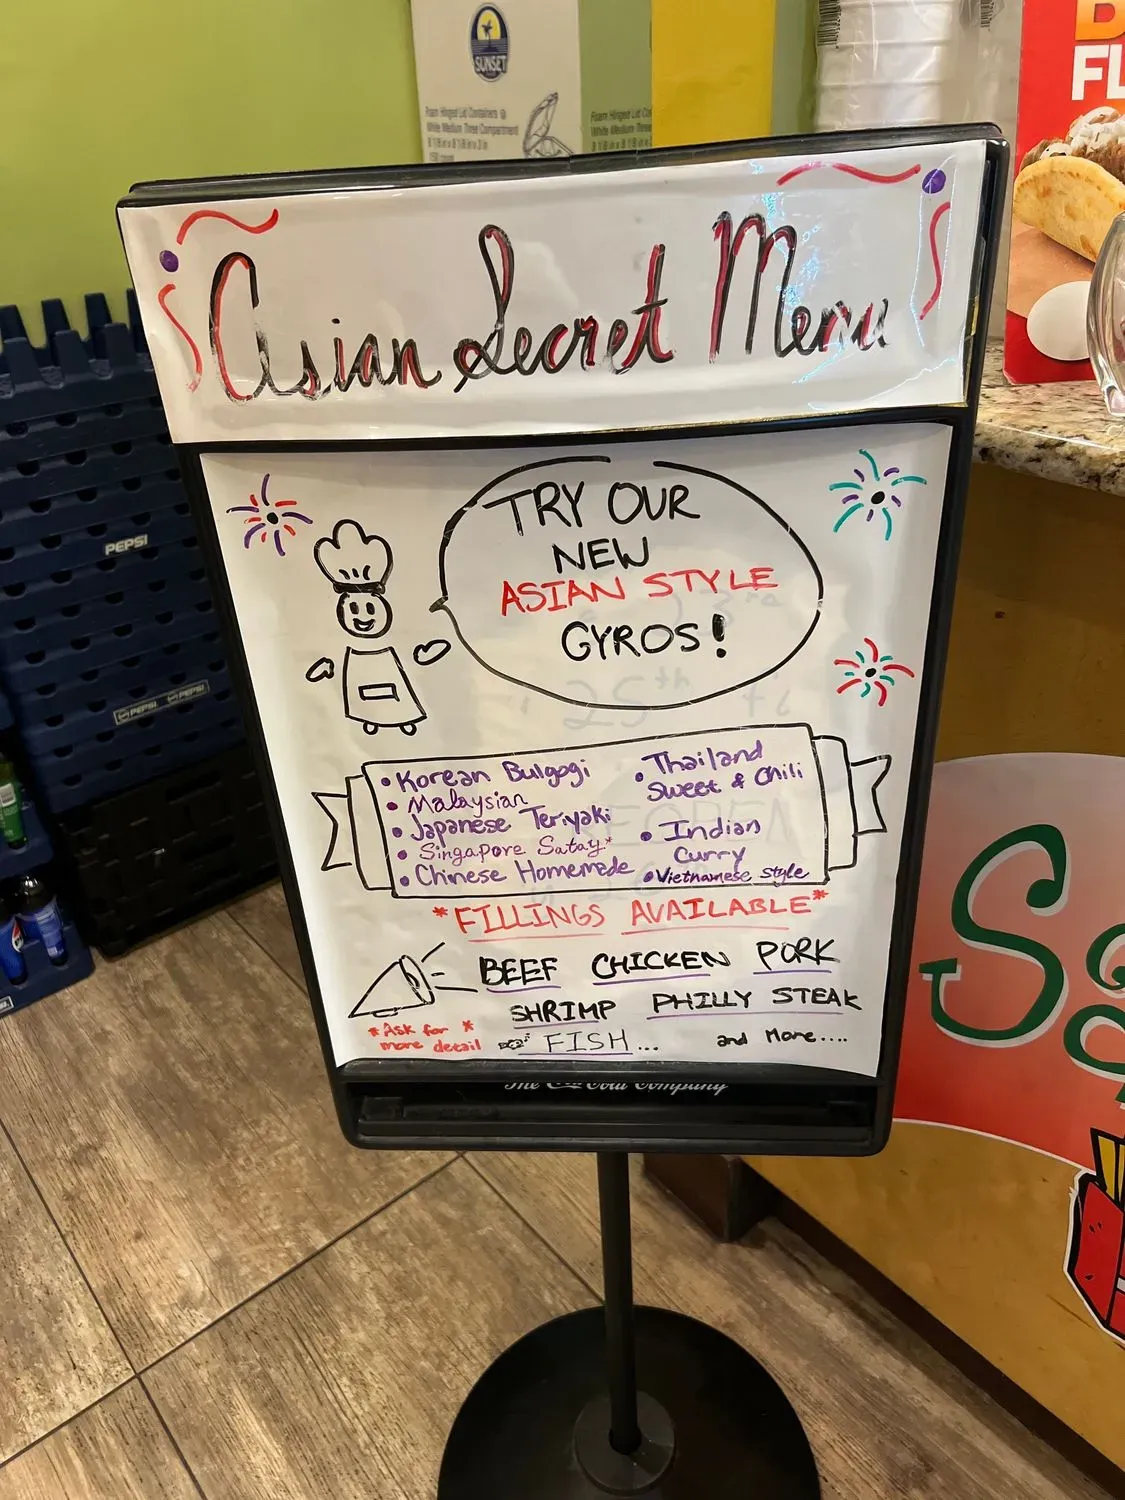 SUNSET
Foam Hinged Lid Containers @
White Medium Three Compartment
Foam Hinged Lid Co
White Medium Three
B
FL
Asian Secret Menu
TRY OUR
NEW
ASIAN STYLE
GYROS!
25th
PEPSI
PEPSI PEPSI
• Korean Bulgogi
• Malaysian
• Japanese Teriyaki
• Singapore Satay*
• Chinese Homemade
• Thailand
Sweet & Chili
• Indian
Curry
• Vietnamese style
*FILLINGS AVAILABLE*
BEEF CHICKEN PORK
SHRIMP PHILLY STEAK
FISH... and More....
*Ask for *
more detail
The Coca-Cola Company
S